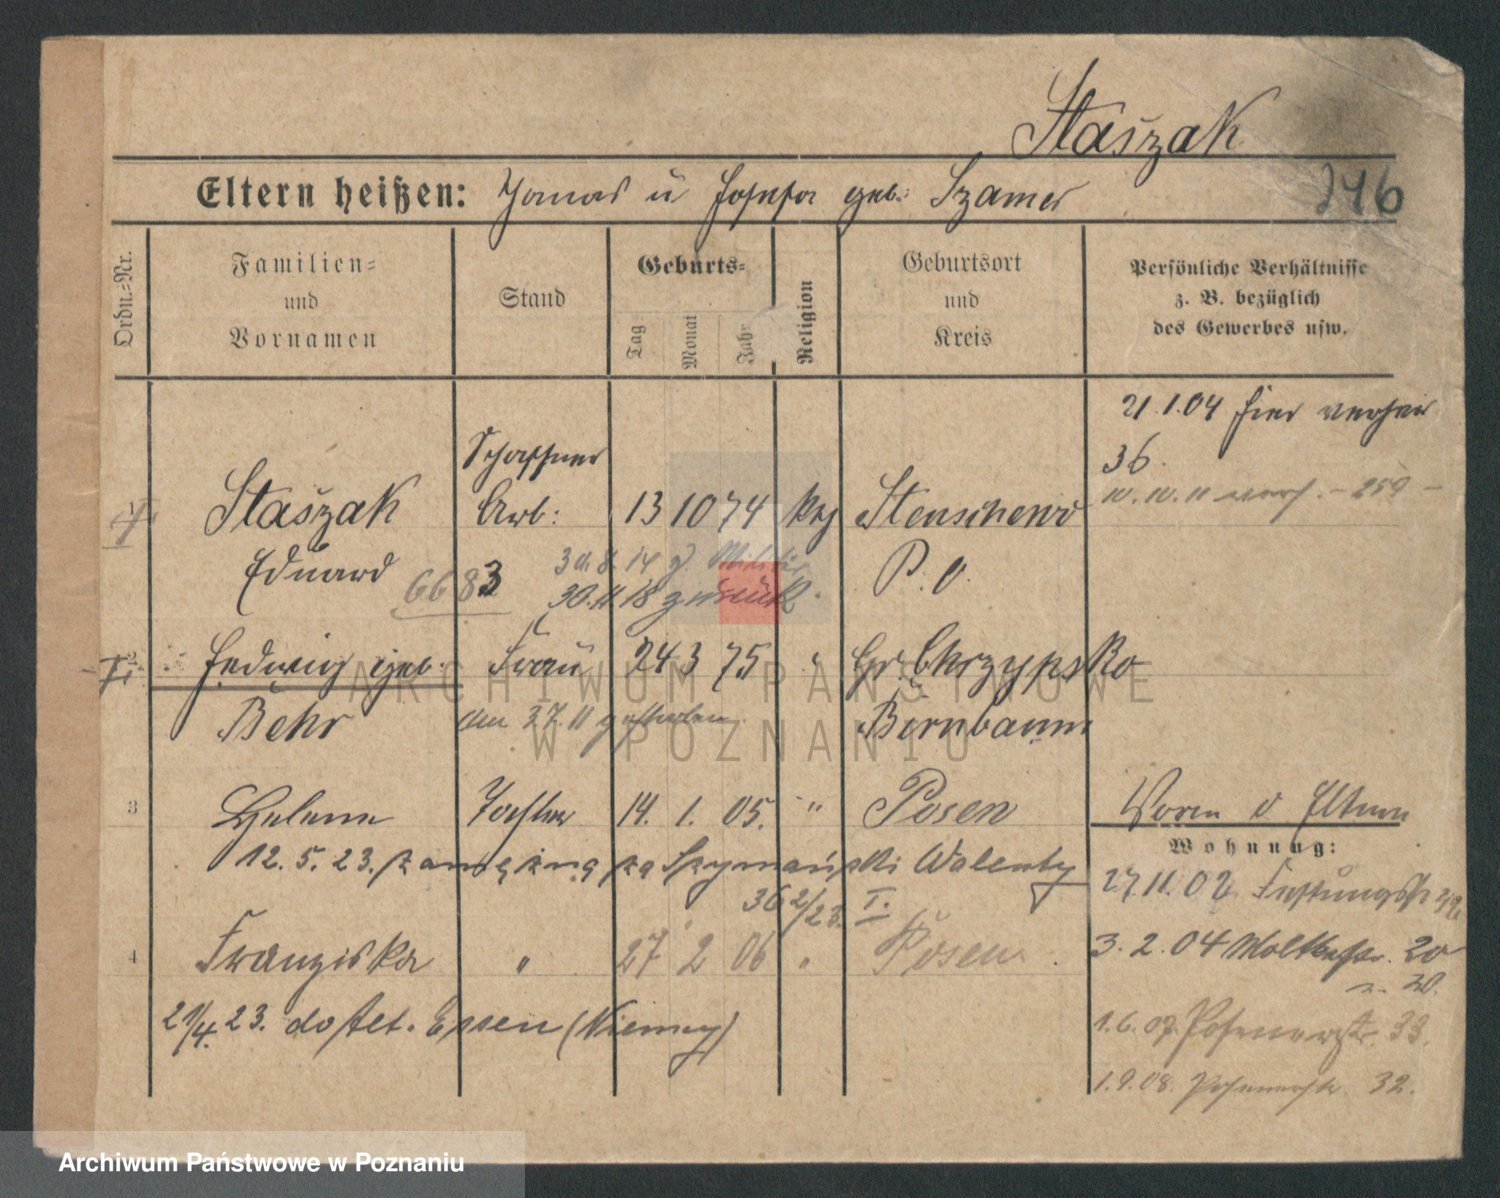 Staszak
Eltern heißen: Thomas u Josefa geb: Szamer
246
Ordn.-Nr.
Familien-
und
Vornamen
Stand
Geburts-
Tag
Monat
Jahr
Religion
Geburtsort
und
Kreis
Persönliche Verhältnisse
z. B. bezüglich
des Gewerbes usw.
21.1.04 hier verheir
36.
10. 10. 11 verh. - 259 -
Schaffner
Staszak Arb: 13 10 74 kth Stenschewo
Eduard 6683 P. O.
3 8. 14 z. Militär
30. 11 18 zurück.
2 Hedwig geb. Frau 24 3 75 Gr. Chrzypsko
Behr Birnbaum
den 27. 11 gestorben
3 Helene Tochter 14. 1. 05. " Posen
Vorn d Eltern
12. 5. 23. zamężna za Szymański Walenty
36 2/23. I.
Wohnung:
27.11.02 Festungsstr
4 Franziska " 27 2 06 " Posen
3. 2. 04 Moltkestr. 20
u. 20.
21/4. 23. do Alt. Essen (Niemcy)
1.6.07. Posenerstr. 33.
1.9.08. Posenerstr. 32.
ARCHIWUM PAŃSTWOWE
W POZNANIU
Archiwum Państwowe w Poznaniu